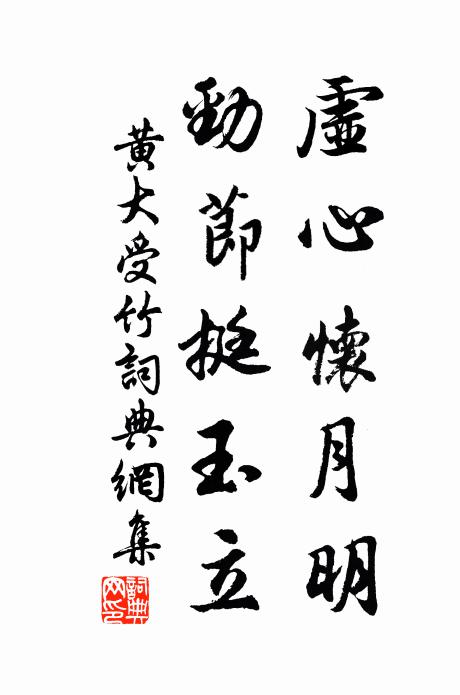 虛心懷月明
勁節挺玉立
黃大受竹詞典網集
詞典網印